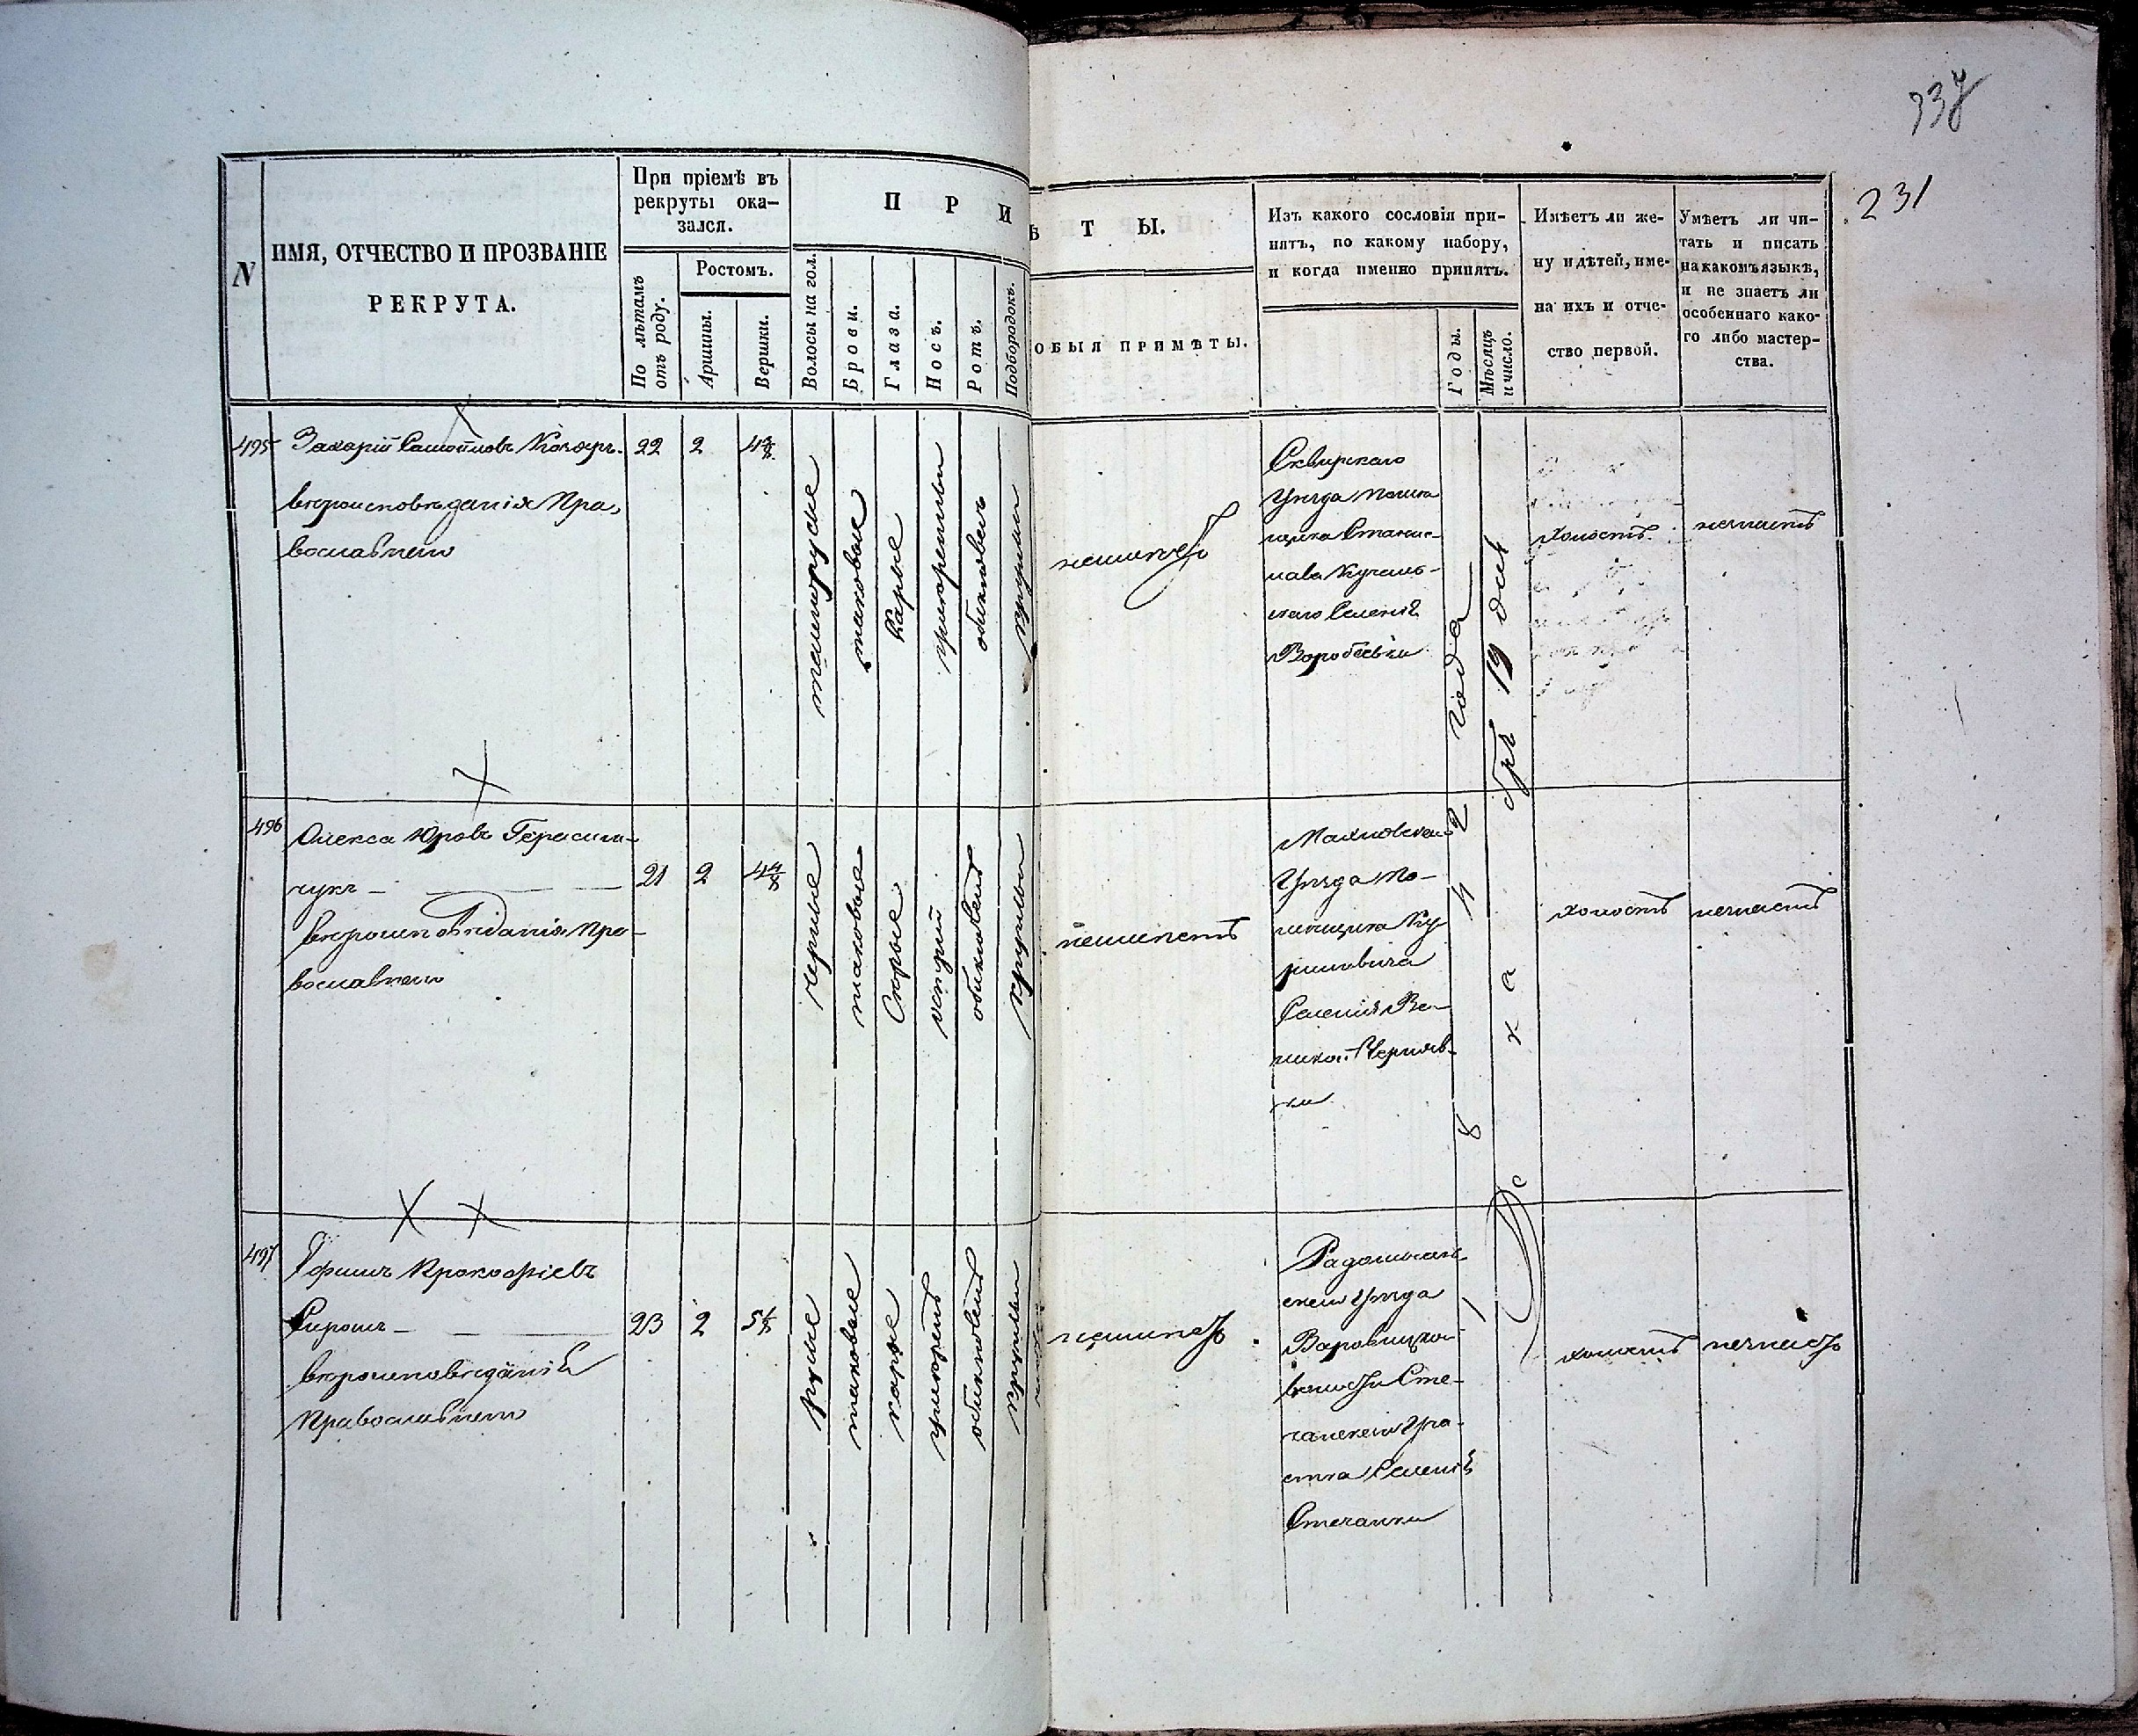 337
231
N
ИМЯ, ОТЧЕСТВО И ПРОЗВАНІЕ
РЕКРУТА.
При пріемѣ въ
рекруты ока-
зался.
По лѣтамъ
отъ роду.
Ростомъ.
Аршины.
Вершки.
П Р И
Волосы на гол.
Брови.
Глаза.
Носъ.
Ротъ.
Подбородокъ.
Ѣ Т Ы.
ОБЫЯ ПРИМѢТЫ.
Изъ какого сословія при-
нятъ, по какому набору,
и когда именно принятъ.
Годы.
Мѣсяцъ
и число.
Имѣетъ ли же-
ну и дѣтей, име-
на ихъ и отче-
ство первой.
Умѣетъ ли чи-
тать и писать
на какомъ языкѣ,
и не знаетъ ли
особеннаго како-
го либо мастер-
ства.
495
Захарій Самойловъ
вѣроисповѣданія Пра-
вославнаго
22
2
темнорусые
таковые
Карые
умѣренный
обыкновен
круглый
неимѣетъ
Сквирскаго
Уѣзда помѣ-
щика Станис-
лава
Селенія
Воробіевки
холостъ
незнаетъ
1842 года
Декабря 19 дня
496
Олекса Юровъ Герасим-
чукъ
вѣроисповѣданія Пра-
вославнаго
21
2
4 4/8
черные
таковые
Сѣрые
острий
обыкновенъ
круглый
неимѣетъ
Махновска
Уѣзда По-
мѣщика
Селенія Ве-
ликой Черняв-
ки
холостъ
незнаетъ
497
Ефимъ Прокофіевъ
Сирошъ
вѣроисповѣданія
Православнаго
23
2
русые
таковые
карые
умѣренъ
обыкновенъ
круглый
неимѣетъ
Радомысль-
скаго Уѣзда
Варовицкой
волости Сте-
чанскаго Уча-
стка Селенія
Стечанки
холостъ
незнаетъ